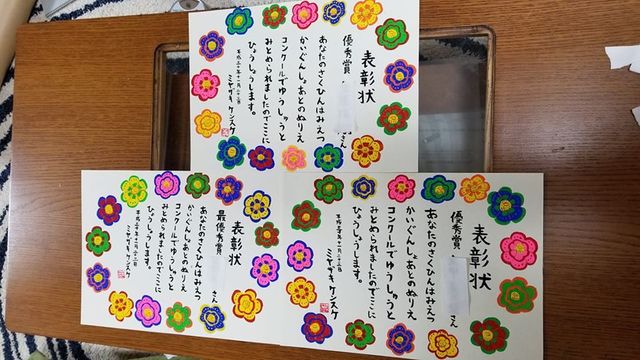 表彰状
優秀賞
さん
あなたのさくひんはみえつ
かいぐんしょあとのぬりえ
コンクールでゆうしゅうと
みとめられましたのでここに
ひょうしょうします。
ミヤザキ ケンスケ
表彰状
最優秀賞
さん
あなたのさくひんはみえつ
かいぐんしょあとのぬりえ
コンクールでゆうしゅうと
みとめられましたのでここに
ひょうしょうします。
ミヤザキ ケンスケ
表彰状
優秀賞
さん
あなたのさくひんはみえつ
かいぐんしょあとのぬりえ
コンクールでゆうしゅうと
みとめられましたのでここに
ひょうしょうします。
ミヤザキ ケンスケ